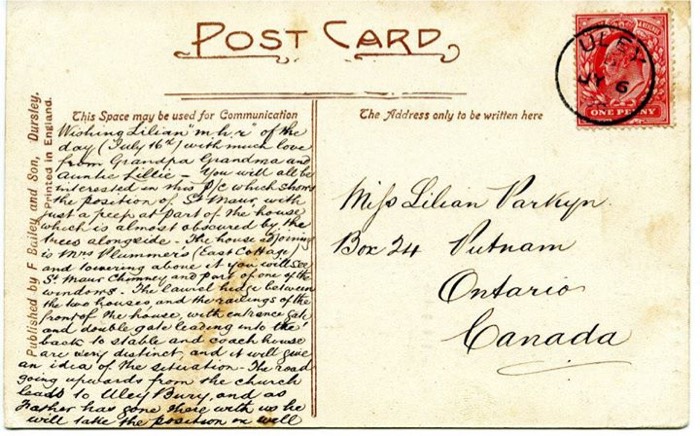 POST CARD
This Space may be used for Communication
The Address only to be written here
Published by F Bailey and Son, Dursley.
Printed in England.
ULEY
6
ONE PENNY
Wishing Lilian "m.h.r" of the
day (July 16th) with much love
from Grandpa Grandma and
Auntie Lillie – You will all be
interested in this P/c which shows
the position of St Maur, with
just a peep at part of the house
which is almost obscured by the
trees alongside – The house adjoining
is Mrs Plummers (East Cottage)
and towering above it you will see
St Maur Chimney and part of one of the
windows. The laurel hedge between
the two houses, and the railings of the
front of the house, with entrance gate
and double gate leading into the
back to stable and coach house
are very distinct, and it will give
an idea of the situation – The road
going upwards from the church
leads to Uley Bury, and as
Father has gone there with us he
will take the position in well
Miss Lilian Parkyn.
Box 24 Putnam
Ontario
Canada